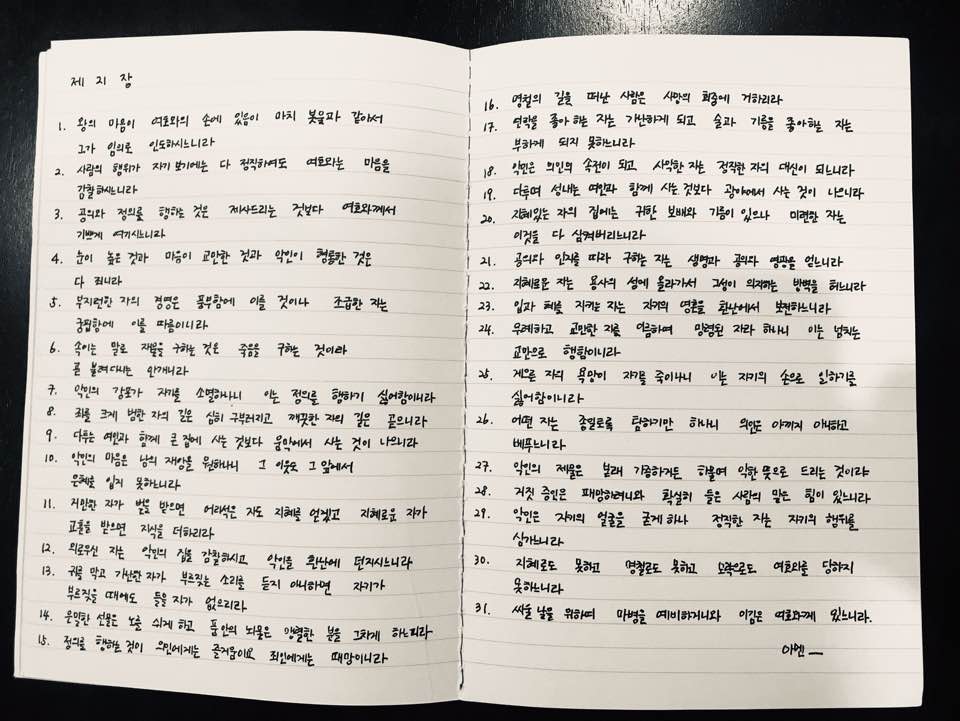 제 지 장
1. 왕의 마음이 여호와의 손에 있음이 마치 봇물과 같아서
그가 임의로 인도하시느니라
2. 사람의 행위가 자기 보기에는 다 정직하여도 여호와는 마음을
감찰하시느니라
3. 공의와 정의를 행하는 것은 제사드리는 것보다 여호와께서
기쁘게 여기시느니라
4. 눈이 높은 것과 마음이 교만한 것과 악인이 형통한 것은
다 죄니라
5. 부지런한 자의 경영은 풍부함에 이를 것이나 조급한 자는
궁핍함에 이를 따름이니라
6. 속이는 말로 재물을 구하는 것은 죽음을 구하는 것이라
곧 불려다니는 안개니라
7. 악인의 강포가 자기를 소멸하나니 이는 정의를 행하기 싫어함이니라
8. 죄를 크게 범한 자의 길은 심히 구부러지고 깨끗한 자의 길은 곧으니라
9. 다투는 여인과 함께 큰 집에 사는 것보다 움막에서 사는 것이 나으니라
10. 악인의 마음은 남의 재앙을 원하나니 그 이웃도 그 앞에서
은혜를 입지 못하느니라
11. 거만한 자가 벌을 받으면 어리석은 자도 지혜를 얻겠고 지혜로운 자가
교훈을 받으면 지식을 더하리라
12. 의로우신 자는 악인의 집을 감찰하시고 악인을 환난에 던지시느니라
13. 귀를 막고 가난한 자가 부르짖는 소리를 듣지 아니하면 자기가
부르짖을 때에도 들을 자가 없으리라
14. 은밀한 선물은 노를 쉬게 하고 품 안의 뇌물은 맹렬한 분을 그치게 하느니라
15. 정의를 행하는 것이 의인에게는 즐거움이요 죄인에게는 패망이니라
16. 명철의 길을 떠난 사람은 사망의 회중에 거하리라
17. 연락을 좋아 하는 자는 가난하게 되고 술과 기름을 좋아하는 자는
부하게 되지 못하느니라
18. 악인은 의인의 속전이 되고 사악한 자는 정직한 자의 대신이 되느니라
19. 다투며 성내는 여인과 함께 사는 것보다 광야에서 사는 것이 나으니라
20. 지혜있는 자의 집에는 귀한 보배와 기름이 있으나 미련한 자는
이것을 다 삼켜버리느니라
21. 공의와 인자를 따라 구하는 자는 생명과 공의와 영광을 얻느니라
22. 지혜로운 자는 용사의 성에 올라가서 그성이 의지하는 방벽을 허느니라
23. 입과 혀를 지키는 자는 자기의 영혼을 환난에서 보전하느니라
24. 무례하고 교만한 자를 이름하여 망령된 자라 하나니 이는 넘치는
교만으로 행함이니라
25. 게으른 자의 욕망이 자기를 죽이나니 이는 자기의 손으로 일하기를
싫어함이니라
26. 어떤 자는 종일토록 탐하기만 하나니 의인은 아끼지 아니하고
베푸느니라
27. 악인의 제물은 본래 가증하거든 하물며 악한 뜻으로 드리는 것이랴
28. 거짓 증인은 패망하려니와 확실히 들은 사람의 말은 힘이 있느니라
29. 악인은 자기의 얼굴을 굳게 하나 정직한 자는 자기의 행위를
삼가느니라
30. 지혜로도 못하고 명철로도 못하고 모략으로도 여호와를 당하지
못하느니라
31. 싸울 날을 위하여 마병을 예비하거니와 이김은 여호와께 있느니라.
아멘 —